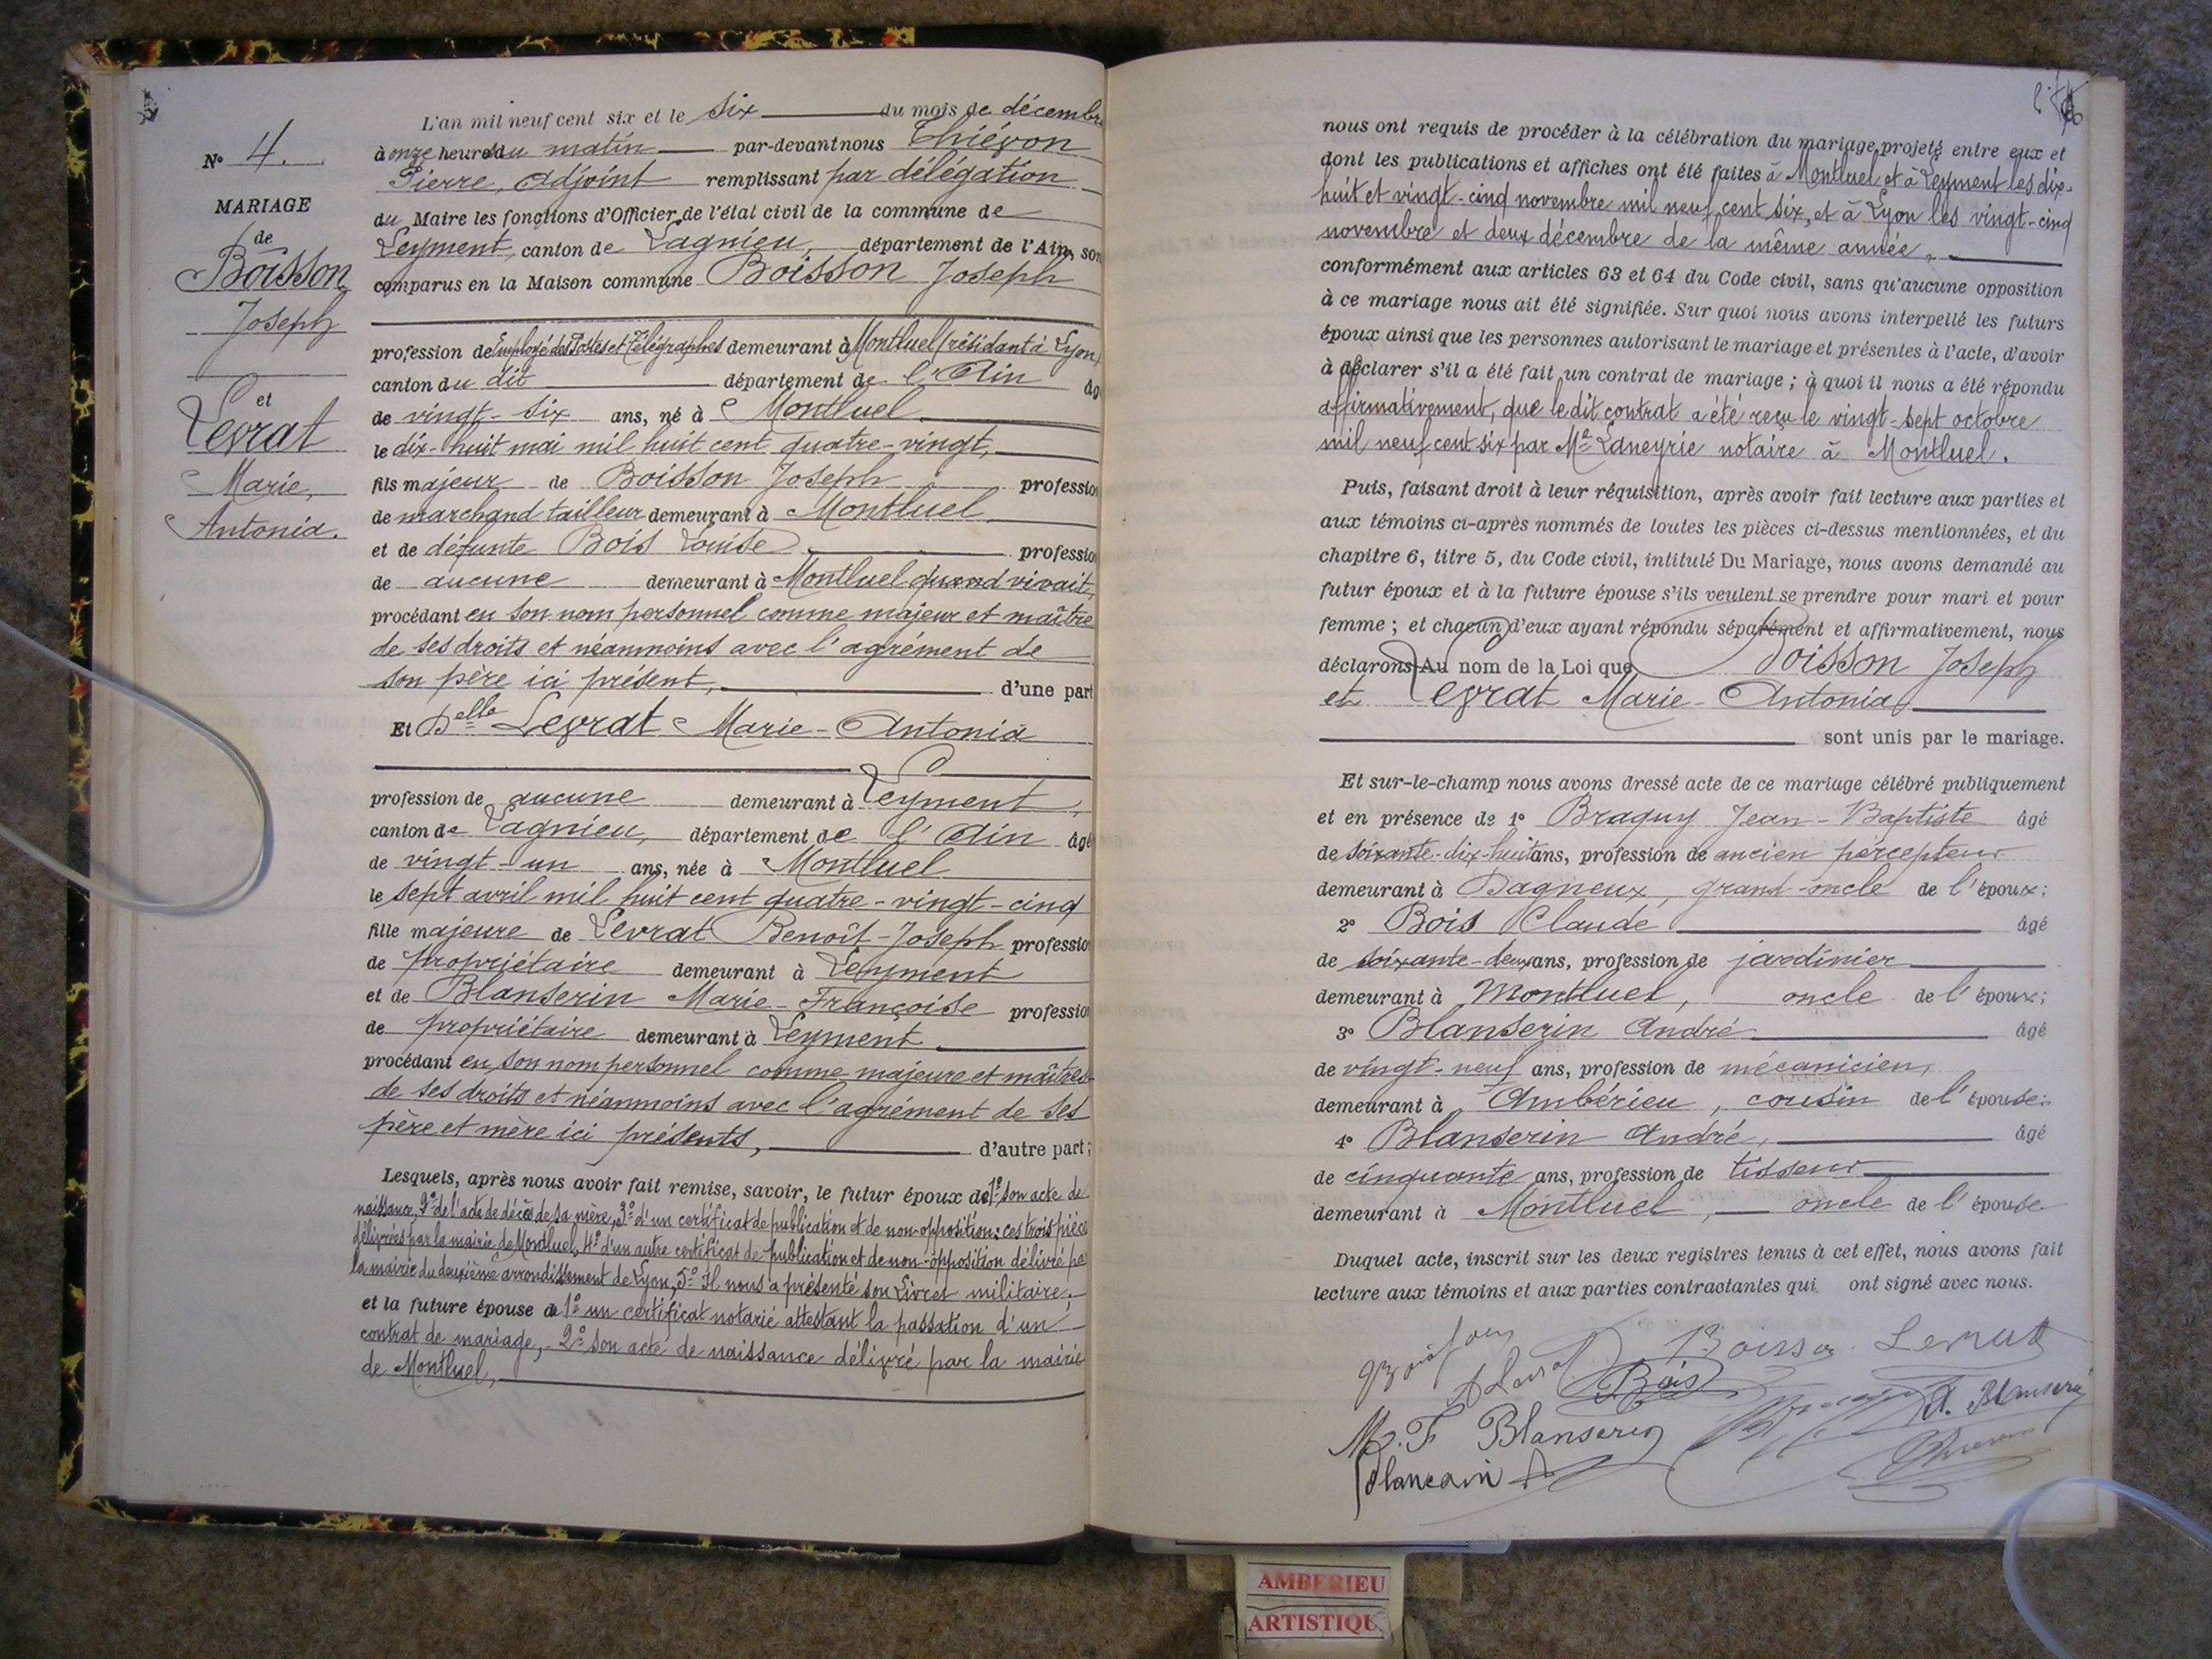 N° 4.
MARIAGE
de
Boisson
Joseph
et
Levrat
Marie,
Antonia.
L'an mil neuf cent six et le six du mois de décembre
à onze heures du matin par-devant nous Thiévon
Pierre, Adjoint remplissant par délégation
du Maire les fonctions d'Officier de l'état civil de la commune de
Leyment, canton de Lagnieu, département de l'Ain, son
comparus en la Maison commune Boisson Joseph
profession de Employé des Postes et Télégraphes demeurant à Montluel (résidant à Lyon)
canton du dit département de l'Ain âg
de vingt-six ans, né à Montluel
le dix-huit mai mil huit cent quatre-vingt,
fils majeur de Boisson Joseph professio
de marchand tailleur demeurant à Montluel
et de défunte Bois Louise professio
de aucune demeurant à Montluel quand vivait,
procédant en son nom personnel comme majeur et maître
de ses droits et néanmoins avec l'agrément de
son père ici présent, d'une part
Et Delle Levrat Marie-Antonia
profession de aucune demeurant à Leyment,
canton de Lagnieu, département de l'Ain âgé
de vingt-un ans, née à Montluel
le sept avril mil huit cent quatre-vingt-cinq
fille majeure de Levrat Benoît-Joseph professio
de propriétaire demeurant à Leyment
et de Blanserin Marie-Françoise professio
de propriétaire demeurant à Leyment
procédant en son nom personnel comme majeure et maîtres
de ses droits et néanmoins avec l'agrément de ses
père et mère ici présents, d'autre part;
Lesquels, après nous avoir fait remise, savoir, le futur époux de 1° son acte de
naissance, 2° de l'acte de décès de sa mère, 3° d'un certificat de publication et de non-opposition; ces trois pièce
délivrées par la mairie de Montluel, 4° d'un autre certificat de publication et de non-opposition délivré par
la mairie du deuxième arrondissement de Lyon, 5° Il nous a présenté son Livret militaire;
et la future épouse de 1° un certificat notarié attestant la passation d'un
contrat de mariage, 2° son acte de naissance délivré par la mairie
de Montluel,
nous ont requis de procéder à la célébration du mariage projeté entre eux et
dont les publications et affiches ont été faites à Montluel et à Leyment les dix-
huit et vingt-cinq novembre mil neuf cent six, et à Lyon les vingt-cinq
novembre et deux décembre de la même année,
conformément aux articles 63 et 64 du Code civil, sans qu'aucune opposition
à ce mariage nous ait été signifiée. Sur quoi nous avons interpellé les futurs
époux ainsi que les personnes autorisant le mariage et présentes à l'acte, d'avoir
à déclarer s'il a été fait un contrat de mariage ; à quoi il nous a été répondu
affirmativement, que le dit contrat a été reçu le vingt-sept octobre
mil neuf cent six par Me Laneyrie notaire à Montluel.
Puis, faisant droit à leur réquisition, après avoir fait lecture aux parties et
aux témoins ci-après nommés de toutes les pièces ci-dessus mentionnées, et du
chapitre 6, titre 5, du Code civil, intitulé Du Mariage, nous avons demandé au
futur époux et à la future épouse s'ils veulent se prendre pour mari et pour
femme ; et chacun d'eux ayant répondu séparément et affirmativement, nous
déclarons Au nom de la Loi que Boisson Joseph
et Levrat Marie-Antonia
sont unis par le mariage.
Et sur-le-champ nous avons dressé acte de ce mariage célébré publiquement
et en présence de 1° Braguy Jean-Baptiste âgé
de soixante-dix-huit ans, profession de ancien percepteur
demeurant à Dagneux, grand-oncle de l'époux;
2° Bois Claude âgé
de soixante-deux ans, profession de jardinier
demeurant à Montluel, oncle de l'époux;
3° Blanserin André âgé
de vingt-neuf ans, profession de mécanicien,
demeurant à Ambérieu, cousin de l'épouse;
4° Blanserin André, âgé
de cinquante ans, profession de tisseur
demeurant à Montluel, oncle de l'épouse
Duquel acte, inscrit sur les deux registres tenus à cet effet, nous avons fait
lecture aux témoins et aux parties contractantes qui ont signé avec nous.
Boisson Levrat
Bois
A. Blanserin
M. F Blanserin
AMBERIEU
ARTISTIQU